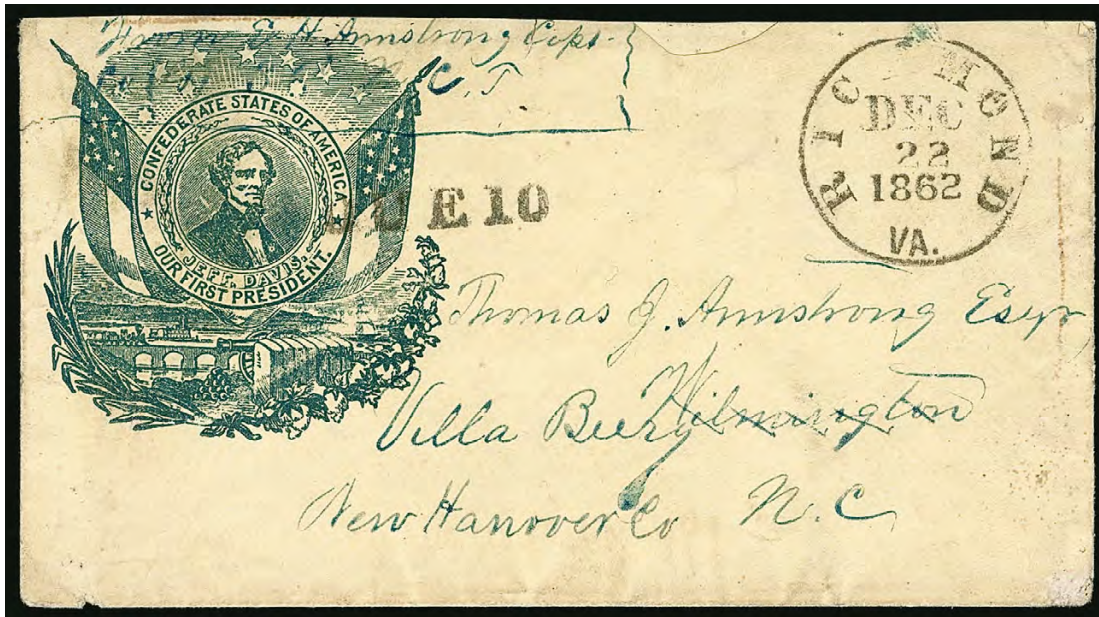 From E. H. Armstrong Capt.
N. C. T.
CONFEDERATE STATES OF AMERICA.
JEFF. DAVIS.
OUR FIRST PRESIDENT.
DUE 10
RICHMOND
DEC
22
1862
VA.
Thomas J. Armstrong Esqr
Wilmington
Villa
New Hanover Co N. C